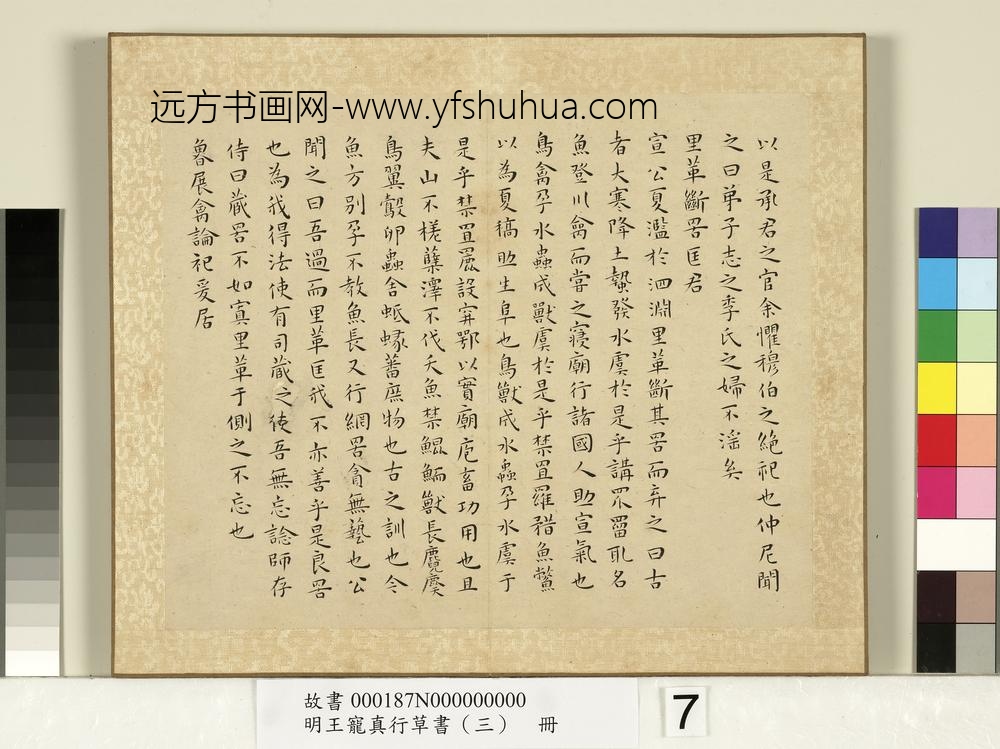 远方书画网-www.yfshuhua.com
以是承君之官余懼穆伯之絶祀也仲尼聞
之曰弟子志之季氏之婦不滛矣
里革斷罟匡君
宣公夏濫於泗淵里革斷其罟而弃之曰古
者大寒降土蟄發水虞於是乎講罛罶取名
魚登川禽而嘗之寢廟行諸國人助宣氣也
鳥禽孕水蟲成獸虞於是乎禁罝羅矠魚鱉
以為夏犒助生阜也鳥獸成水蟲孕水虞于
是乎禁罝䍡設穽鄂以實廟庖畜功用也且
夫山不槎蘖澤不伐夭魚禁鯤鮞獸長麑䴠
鳥翼鷇卵蟲舍蚳蝝蕃庶物也古之訓也今
魚方别孕不教魚長又行網罟貪無藝也公
聞之曰吾過而里革匡我不亦善乎是良罟
也為我得法使有司藏之使吾無忘諗師存
侍曰藏罟不如寘里革于側之不忘也
魯展禽論祀爰居
故書000187N000000000
明王寵真行草書（三） 冊
7